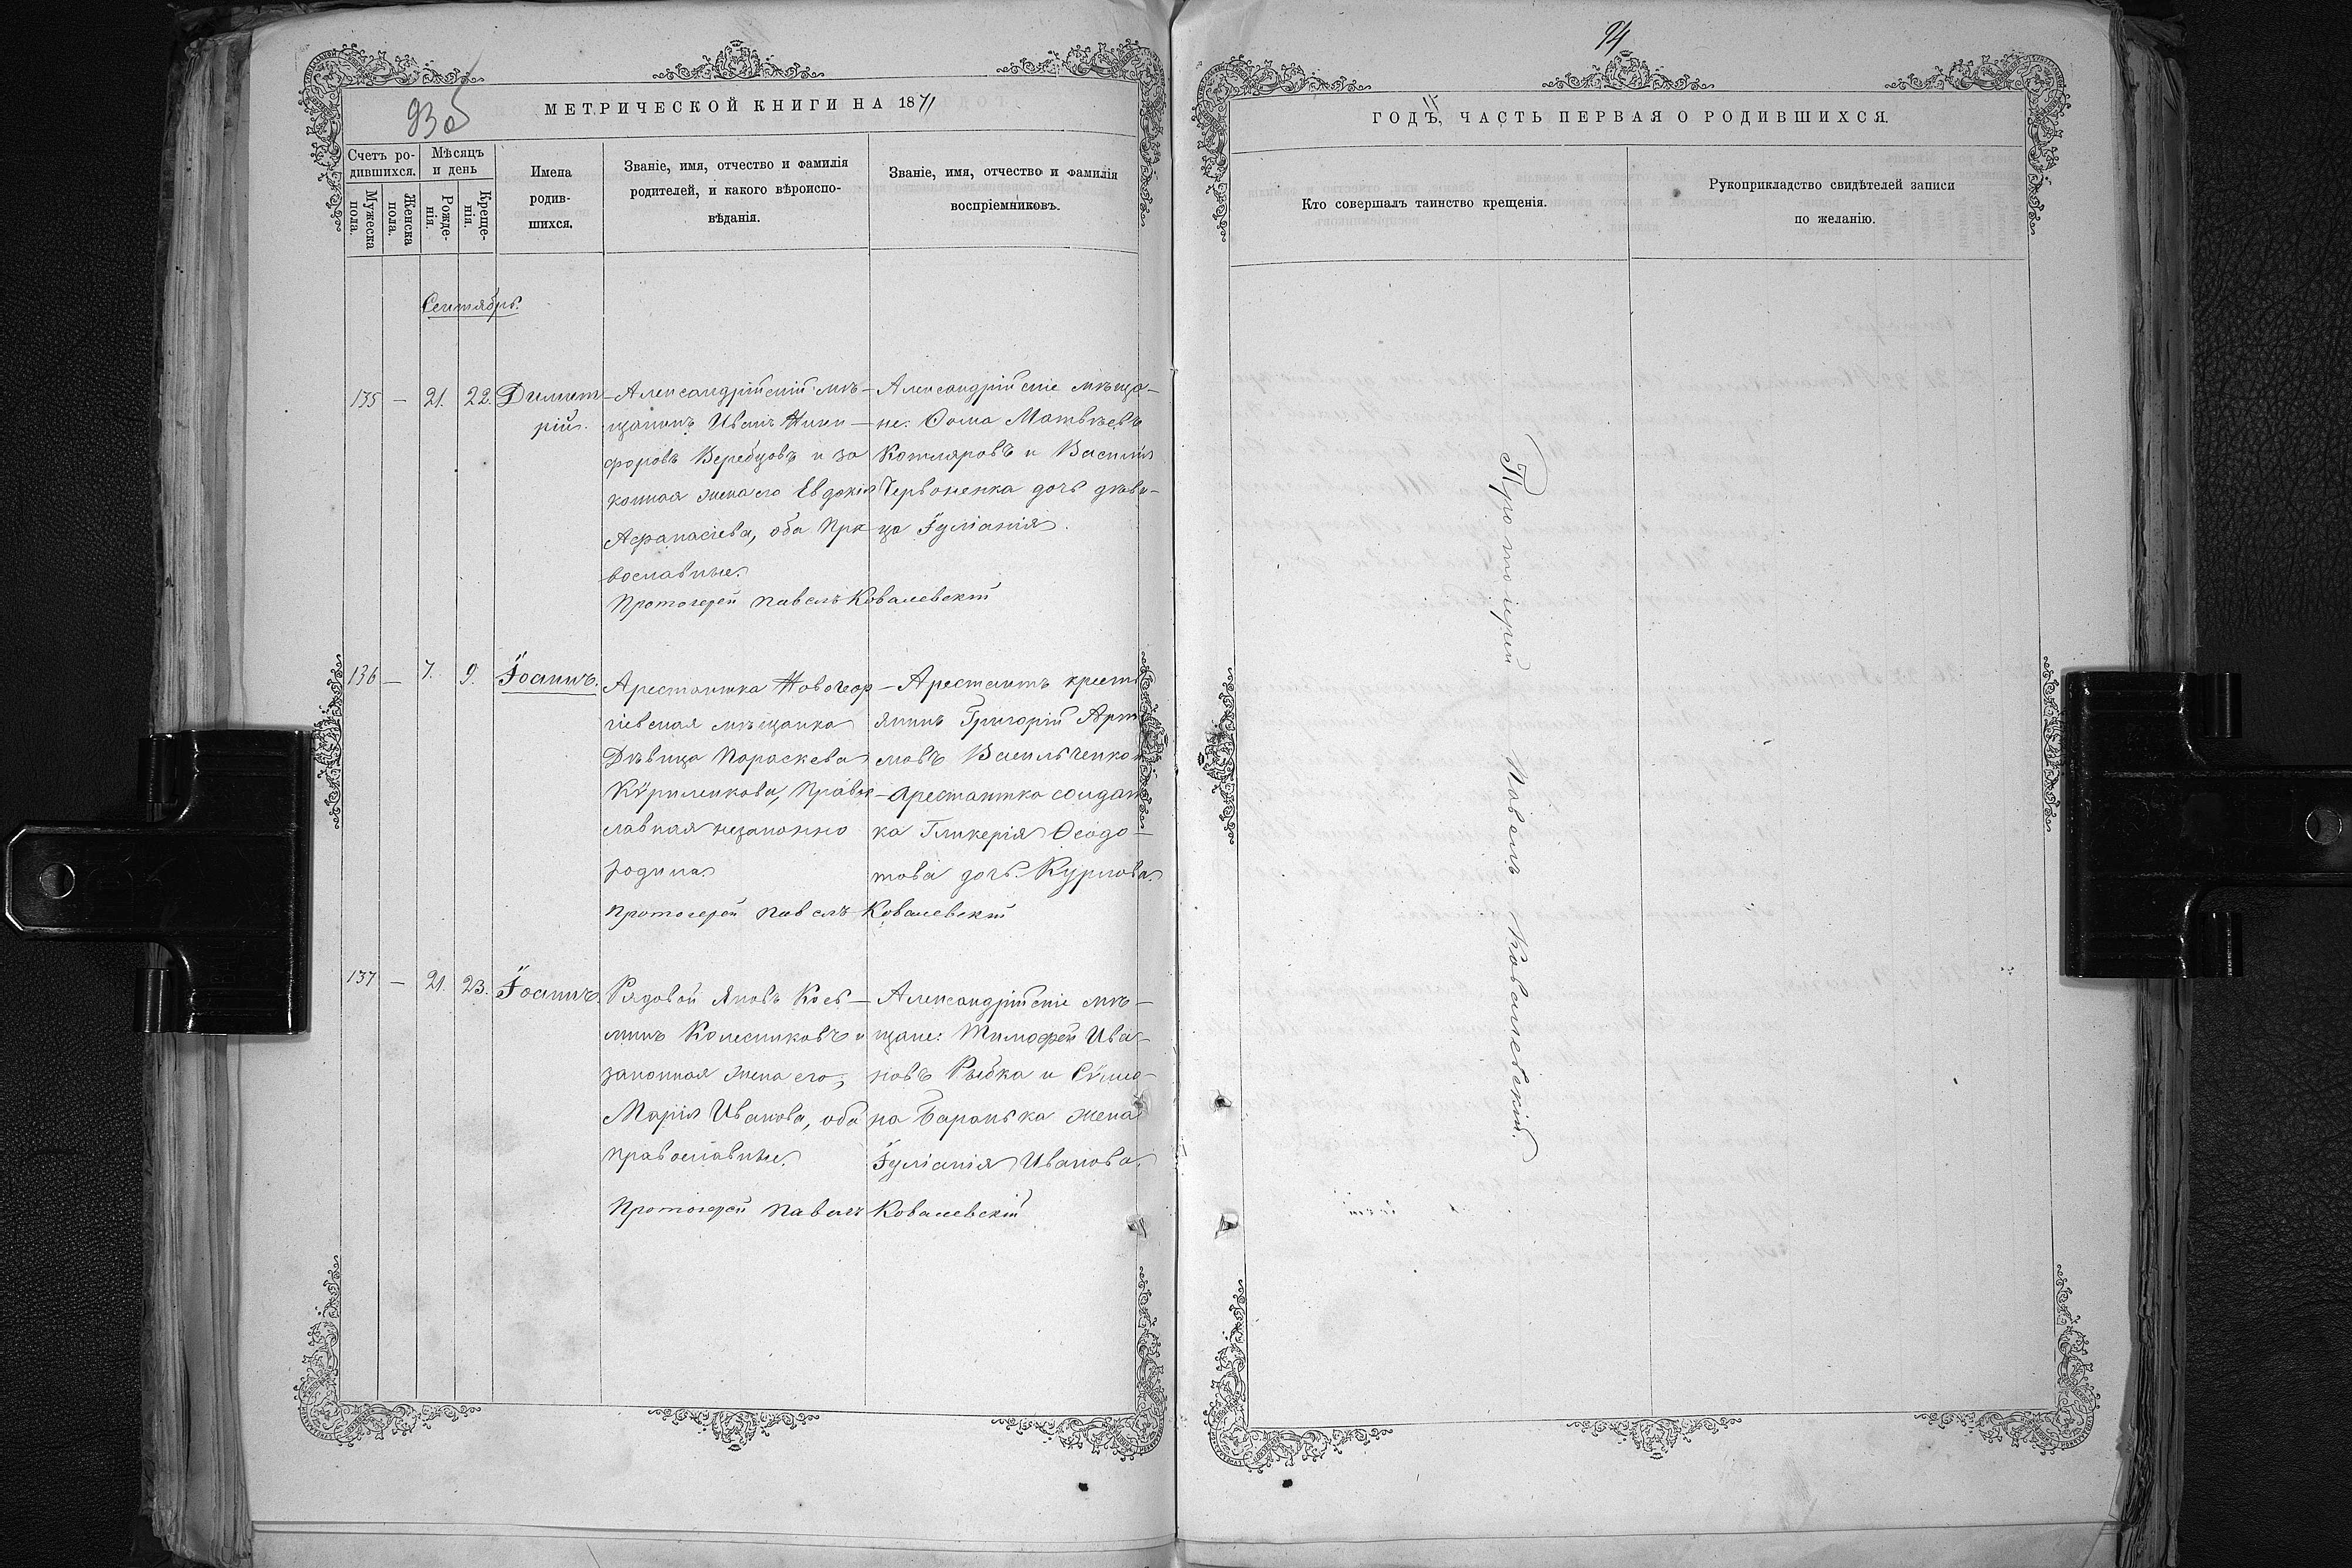 93об
МЕТРИЧЕСКОЙ КНИГИ НА 1871
Счетъ ро-
дившихся.
Мужеска
пола.
Женска
пола.
Мѣсяцъ
и день
Рожде-
нія.
Креще-
нія.
Имена
родив-
шихся.
Званіе, имя, отчество и фамилія
родителей, и какого вѣроиспо-
вѣданія.
Званіе, имя, отчество и фамилія
воспріемниковъ.
Сентябрь.
135 — 21. 22. Димит-
рій.
Александрійскій мѣ-
щанинъ Иванъ Ники-
форовъ Веребцовъ и за
конная жена его Евдокія
Афанасіева, оба Пра
вославные.
Александрійскіе мѣща-
не: Ѳома Матвѣевъ
Котляровъ и Василія
Червоненка дочь дѣви-
ца Іуліанія.
Протоіерей Павелъ Ковалевскій
136 — 7. 9. Іоаннъ.
Арестантка Новогеор-
гіевская мѣщанка
Дѣвица Параскева
Куриленкова, Право
славная незаконно
родила
Арестантъ крестъ
янинъ Григорій Арте
мовъ Васильченко и
Арестантка солдат
ка Гликерія Ѳеодо-
това дочь Курлова.
Протоіерей Павелъ Ковалевскій
137 — 21. 23. Іоаннъ.
Рядовой Яковъ Козь-
минъ Колесниковъ и
законная жена его,
Марія Иванова, оба
православные.
Александрійскіе мѣ-
щане: Тимофей Ива-
новъ Рыбка и Сѵмео-
на Баранька жена
Іуліанія Иванова.
Протоіерей Павелъ Ковалевскій
94
ГОДЪ, ЧАСТЬ ПЕРВАЯ О РОДИВШИХСЯ.
Кто совершалъ таинство крещенія.
Рукоприкладство свидѣтелей записи
по желанію.
Протоіерей Павелъ Ковалевскій.